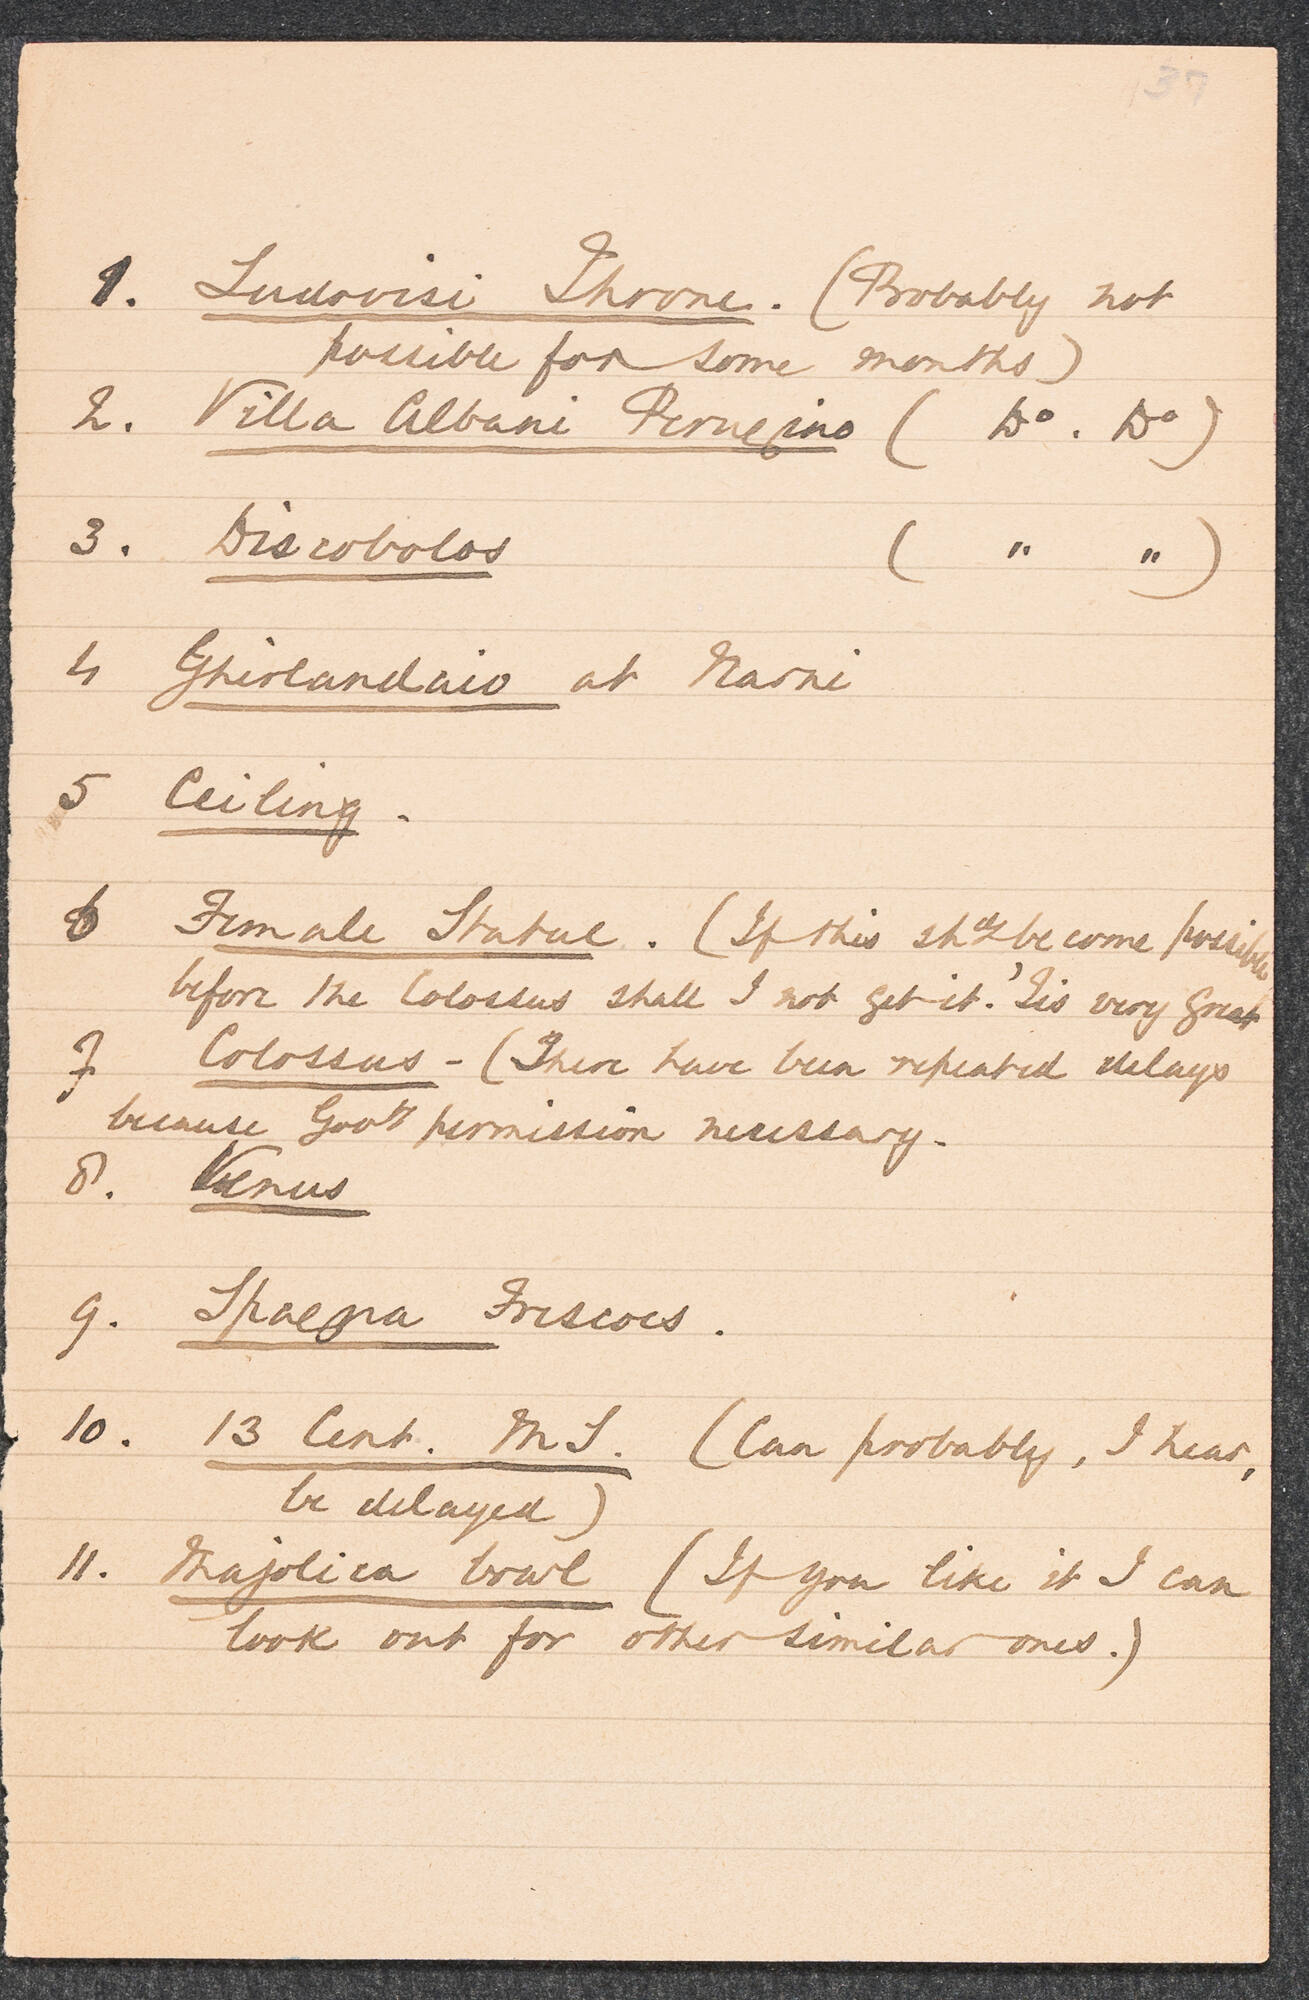 137
1. Ludovisi Throne. (Probably not
possible for some months)
2. Villa Albani Perugino ( Do. Do)
3. Discobolos ( " " )
4 Ghirlandaio at Narni
5 Ceiling.
6 Female Statue. (If this shd become possible
before the Colossus shall I not get it. 'Tis very great
7 Colossus - (There have been repeated delays
because Govt permission necessary.
8. Venus
9. Spagna Frescoes.
10. 13 Cent. MS. (Can probably, I hear,
be delayed)
11. Majolica bowl (If you like it I can
look out for other similar ones.)